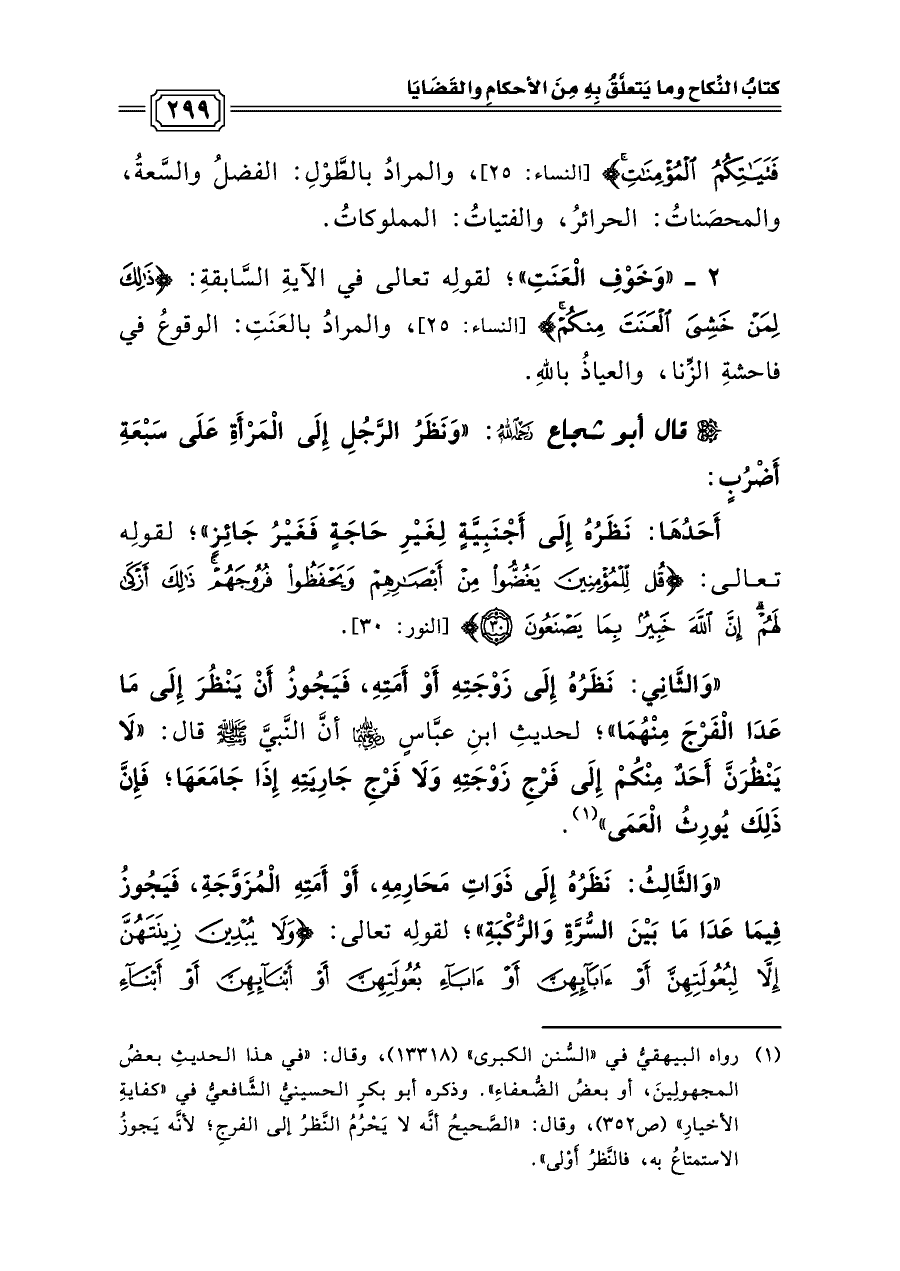 كتابُ النِّكاح وما يَتعلَّقُ بِهِ مِنَ الأحكامِ والقَضَايَا
٢٩٩
فَتَيَٰتِكُمُ ٱلْمُؤْمِنَٰتِۚ﴾ [النساء: ٢٥]، والمرادُ بالطَّوْلِ: الفضلُ والسَّعةُ،
والمحصَناتُ: الحرائرُ، والفتياتُ: المملوكاتُ.
٢ ـ «وَخَوْفِ الْعَنَتِ»؛ لقولِه تعالى في الآيةِ السَّابقةِ: ﴿ذَٰلِكَ
لِمَنْ خَشِىَ ٱلْعَنَتَ مِنكُمْۚ﴾ [النساء: ٢٥]، والمرادُ بالعَنَتِ: الوقوعُ في
فاحشةِ الزِّنا، والعياذُ باللهِ.
قال أبو شجاع رَحِمَهُ اللهُ: «وَنَظَرُ الرَّجُلِ إِلَى الْمَرْأَةِ عَلَى سَبْعَةِ
أَضْرُبٍ:
أَحَدُهَا: نَظَرُهُ إِلَى أَجْنَبِيَّةٍ لِغَيْرِ حَاجَةٍ فَغَيْرُ جَائِزٍ»؛ لقولِه
تعالى: ﴿قُل لِّلْمُؤْمِنِينَ يَغُضُّوا۟ مِنْ أَبْصَٰرِهِمْ وَيَحْفَظُوا۟ فُرُوجَهُمْۚ ذَٰلِكَ أَزْكَىٰ
لَهُمْۗ إِنَّ ٱللَّهَ خَبِيرٌۢ بِمَا يَصْنَعُونَ ٣٠﴾ [النور: ٣٠].
«وَالثَّانِي: نَظَرُهُ إِلَى زَوْجَتِهِ أَوْ أَمَتِهِ، فَيَجُوزُ أَنْ يَنْظُرَ إِلَى مَا
عَدَا الْفَرْجَ مِنْهُمَا»؛ لحديثِ ابنِ عبَّاسٍ رضي الله عنهما أنَّ النَّبيَّ ﷺ قال: «لَا
يَنْظُرَنَّ أَحَدٌ مِنْكُمْ إِلَى فَرْجِ زَوْجَتِهِ وَلَا فَرْجِ جَارِيَتِهِ إِذَا جَامَعَهَا؛ فَإِنَّ
ذَلِكَ يُورِثُ الْعَمَى»(١).
«وَالثَّالِثُ: نَظَرُهُ إِلَى ذَوَاتِ مَحَارِمِهِ، أَوْ أَمَتِهِ الْمُزَوَّجَةِ، فَيَجُوزُ
فِيمَا عَدَا مَا بَيْنَ السُّرَّةِ وَالرُّكْبَةِ»؛ لقولِه تعالى: ﴿وَلَا يُبْدِينَ زِينَتَهُنَّ
إِلَّا لِبُعُولَتِهِنَّ أَوْ ءَابَآئِهِنَّ أَوْ ءَابَآءِ بُعُولَتِهِنَّ أَوْ أَبْنَآئِهِنَّ أَوْ أَبْنَآءِ
(١) رواه البيهقيُّ في «السُّنن الكبرى» (١٣٣١٨)، وقال: «في هذا الحديثِ بعضُ
المجهولِينَ، أو بعضُ الضُّعفاءِ». وذكره أبو بكرٍ الحسينيُّ الشَّافعيُّ في «كفايةِ
الأخيارِ» (ص٣٥٢)، وقال: «الصَّحيحُ أنَّه لا يَحْرُمُ النَّظرُ إلى الفرجِ؛ لأنَّه يَجوزُ
الاستمتاعُ به، فالنَّظرُ أَوْلى».